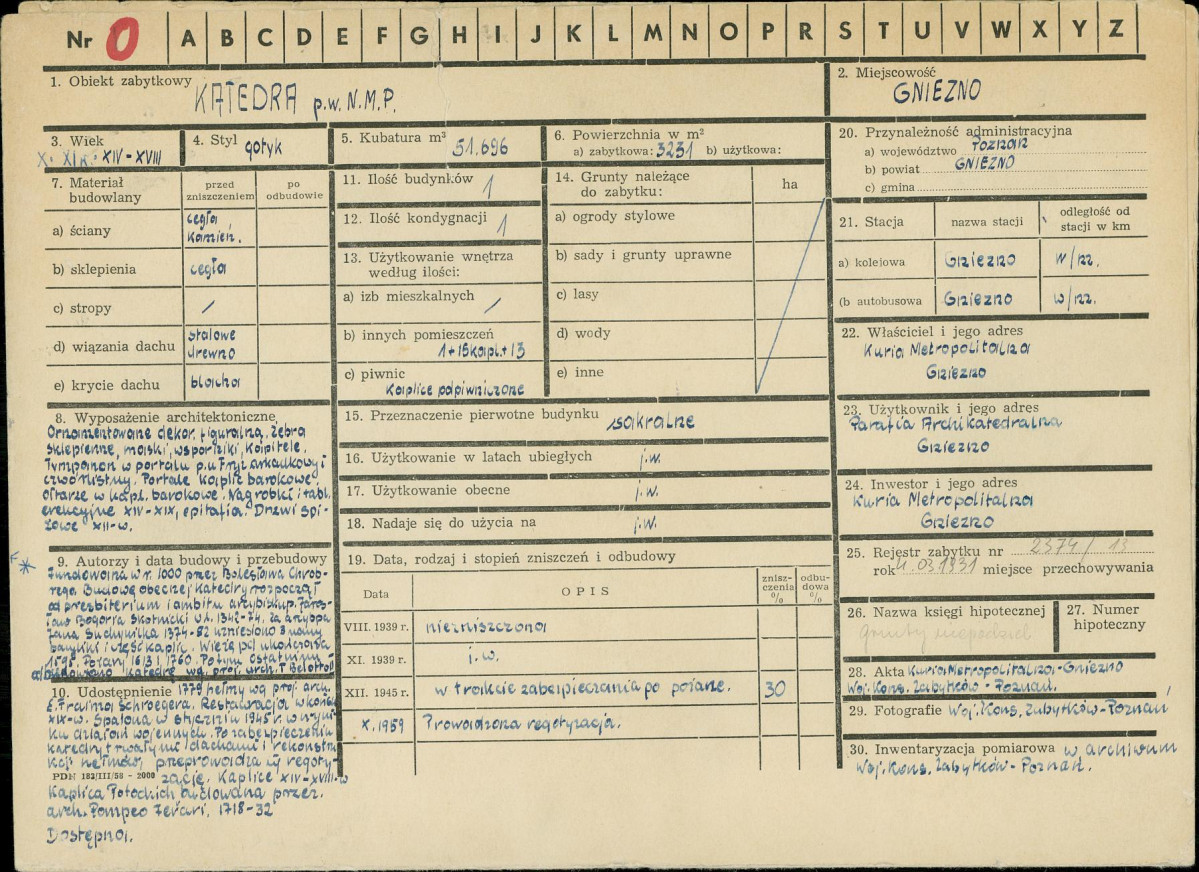 Nr 0 A B C D E F G H I J K L M N O P R S T U V W X Y Z
1. Obiekt zabytkowy
KATEDRA p.w. N.M.P.
2. Miejscowość
GNIEZNO
3. Wiek
XIV-XVIII
4. Styl gotyk
5. Kubatura m³ 51.696
6. Powierzchnia w m²
a) zabytkowa: 3231 b) użytkowa:
20. Przynależność administracyjna
a) województwo Poznań
b) powiat GNIEZNO
c) gmina
7. Materiał budowlany
przed zniszczeniem
po odbudowie
a) ściany cegła kamień.
b) sklepienia cegła
c) stropy /
d) wiązania dachu stalowe drewno
e) krycie dachu blacha
11. Ilość budynków 1
12. Ilość kondygnacji 1
13. Użytkowanie wnętrza
według ilości:
a) izb mieszkalnych /
b) innych pomieszczeń
1+15kapl.+13
c) piwnic
Kaplice podpiwniczone
14. Grunty należące
do zabytku:
ha
a) ogrody stylowe
b) sady i grunty uprawne
c) lasy
d) wody
e) inne
21. Stacja
nazwa stacji
odległość od
stacji w km
a) kolejowa Gniezno w/m.
(b autobusowa Gniezno w/m.
22. Właściciel i jego adres
Kuria Metropolitalna
Gniezno
23. Użytkownik i jego adres
Parafia Archikatedralna
Gniezno
24. Inwestor i jego adres
Kuria Metropolitalna
Gniezno
8. Wyposażenie architektoniczne
Ornamentowane dekor. figuralną, żebra
sklepienne, maski, wsporniki, kapitele.
Tympanon w portalu płu. Fryz arkadkowy i
czwórlistny. Portale kaplic barokowe,
ołtarze w kapl. barokowe. Nagrobki i tabl.
erekcyjne XIV-XIX, epitafia. Drzwi spi-
żowe XII-w.
15. Przeznaczenie pierwotne budynku sakralne
16. Użytkowanie w latach ubiegłych j.w.
17. Użytkowanie obecne j.w.
18. Nadaje się do użycia na j.w.
9. Autorzy i data budowy i przebudowy
Fundowana w r. 1000 przez Bolesława Chrob-
rego. Budowę obecnej katedry rozpoczął
od prezbiterium i ambitu arcybiskup. Jaros-
ław Bogoria Skotnicki 1342-74. Za arcybpa
Jana Suchywilka 1374-82 wzniesiono 3 nawy
i część kaplic. Wieżę płd ukończono
1595. Pożary 1613 i 1760. Po tym ostatnim
odbudowano katedrę wg. proj. arch. F. Belotroti
10. Udostępnienie 1779 hełmy wg proj. arch.
E. Fraima Schroegera. Restauracja w końcu
XIX-w. Spalona w styczniu 1945 r. w wyni-
ku działań wojennych. Po zabezpieczeniu
katedry trwałymi dachami i rekonstru
kcji hełmów, przeprowadza się regoty-
PDN 182/III/58 - 2000 zację. Kaplice XIV-XVIII-w
Kaplica Potockich budowana przez.
arch. Pompeo Ferari. 1718-32
Dostępna.
19. Data, rodzaj i stopień zniszczeń i odbudowy
Data
OPIS
znisz-
czenia
%
odbu-
dowa
%
VIII. 1939 r. niezniszczona
XI. 1939 r. j.w.
XII. 1945 r. w trakcie zabezpieczania po pożarze. 30
X. 1959 Prowadzona regotyzacja.
25. Rejestr zabytku nr 2374/13
rok 11.03.1931 miejsce przechowywania
26. Nazwa księgi hipotecznej
27. Numer
hipoteczny
28. Akta Kuria Metropolitalna - Gniezno
Woj. Kons. Zabytków - Poznań.
29. Fotografie Woj. Kons. Zabytków - Poznań
30. Inwentaryzacja pomiarowa w archiwum
Woj. Kons. Zabytków - Poznań.